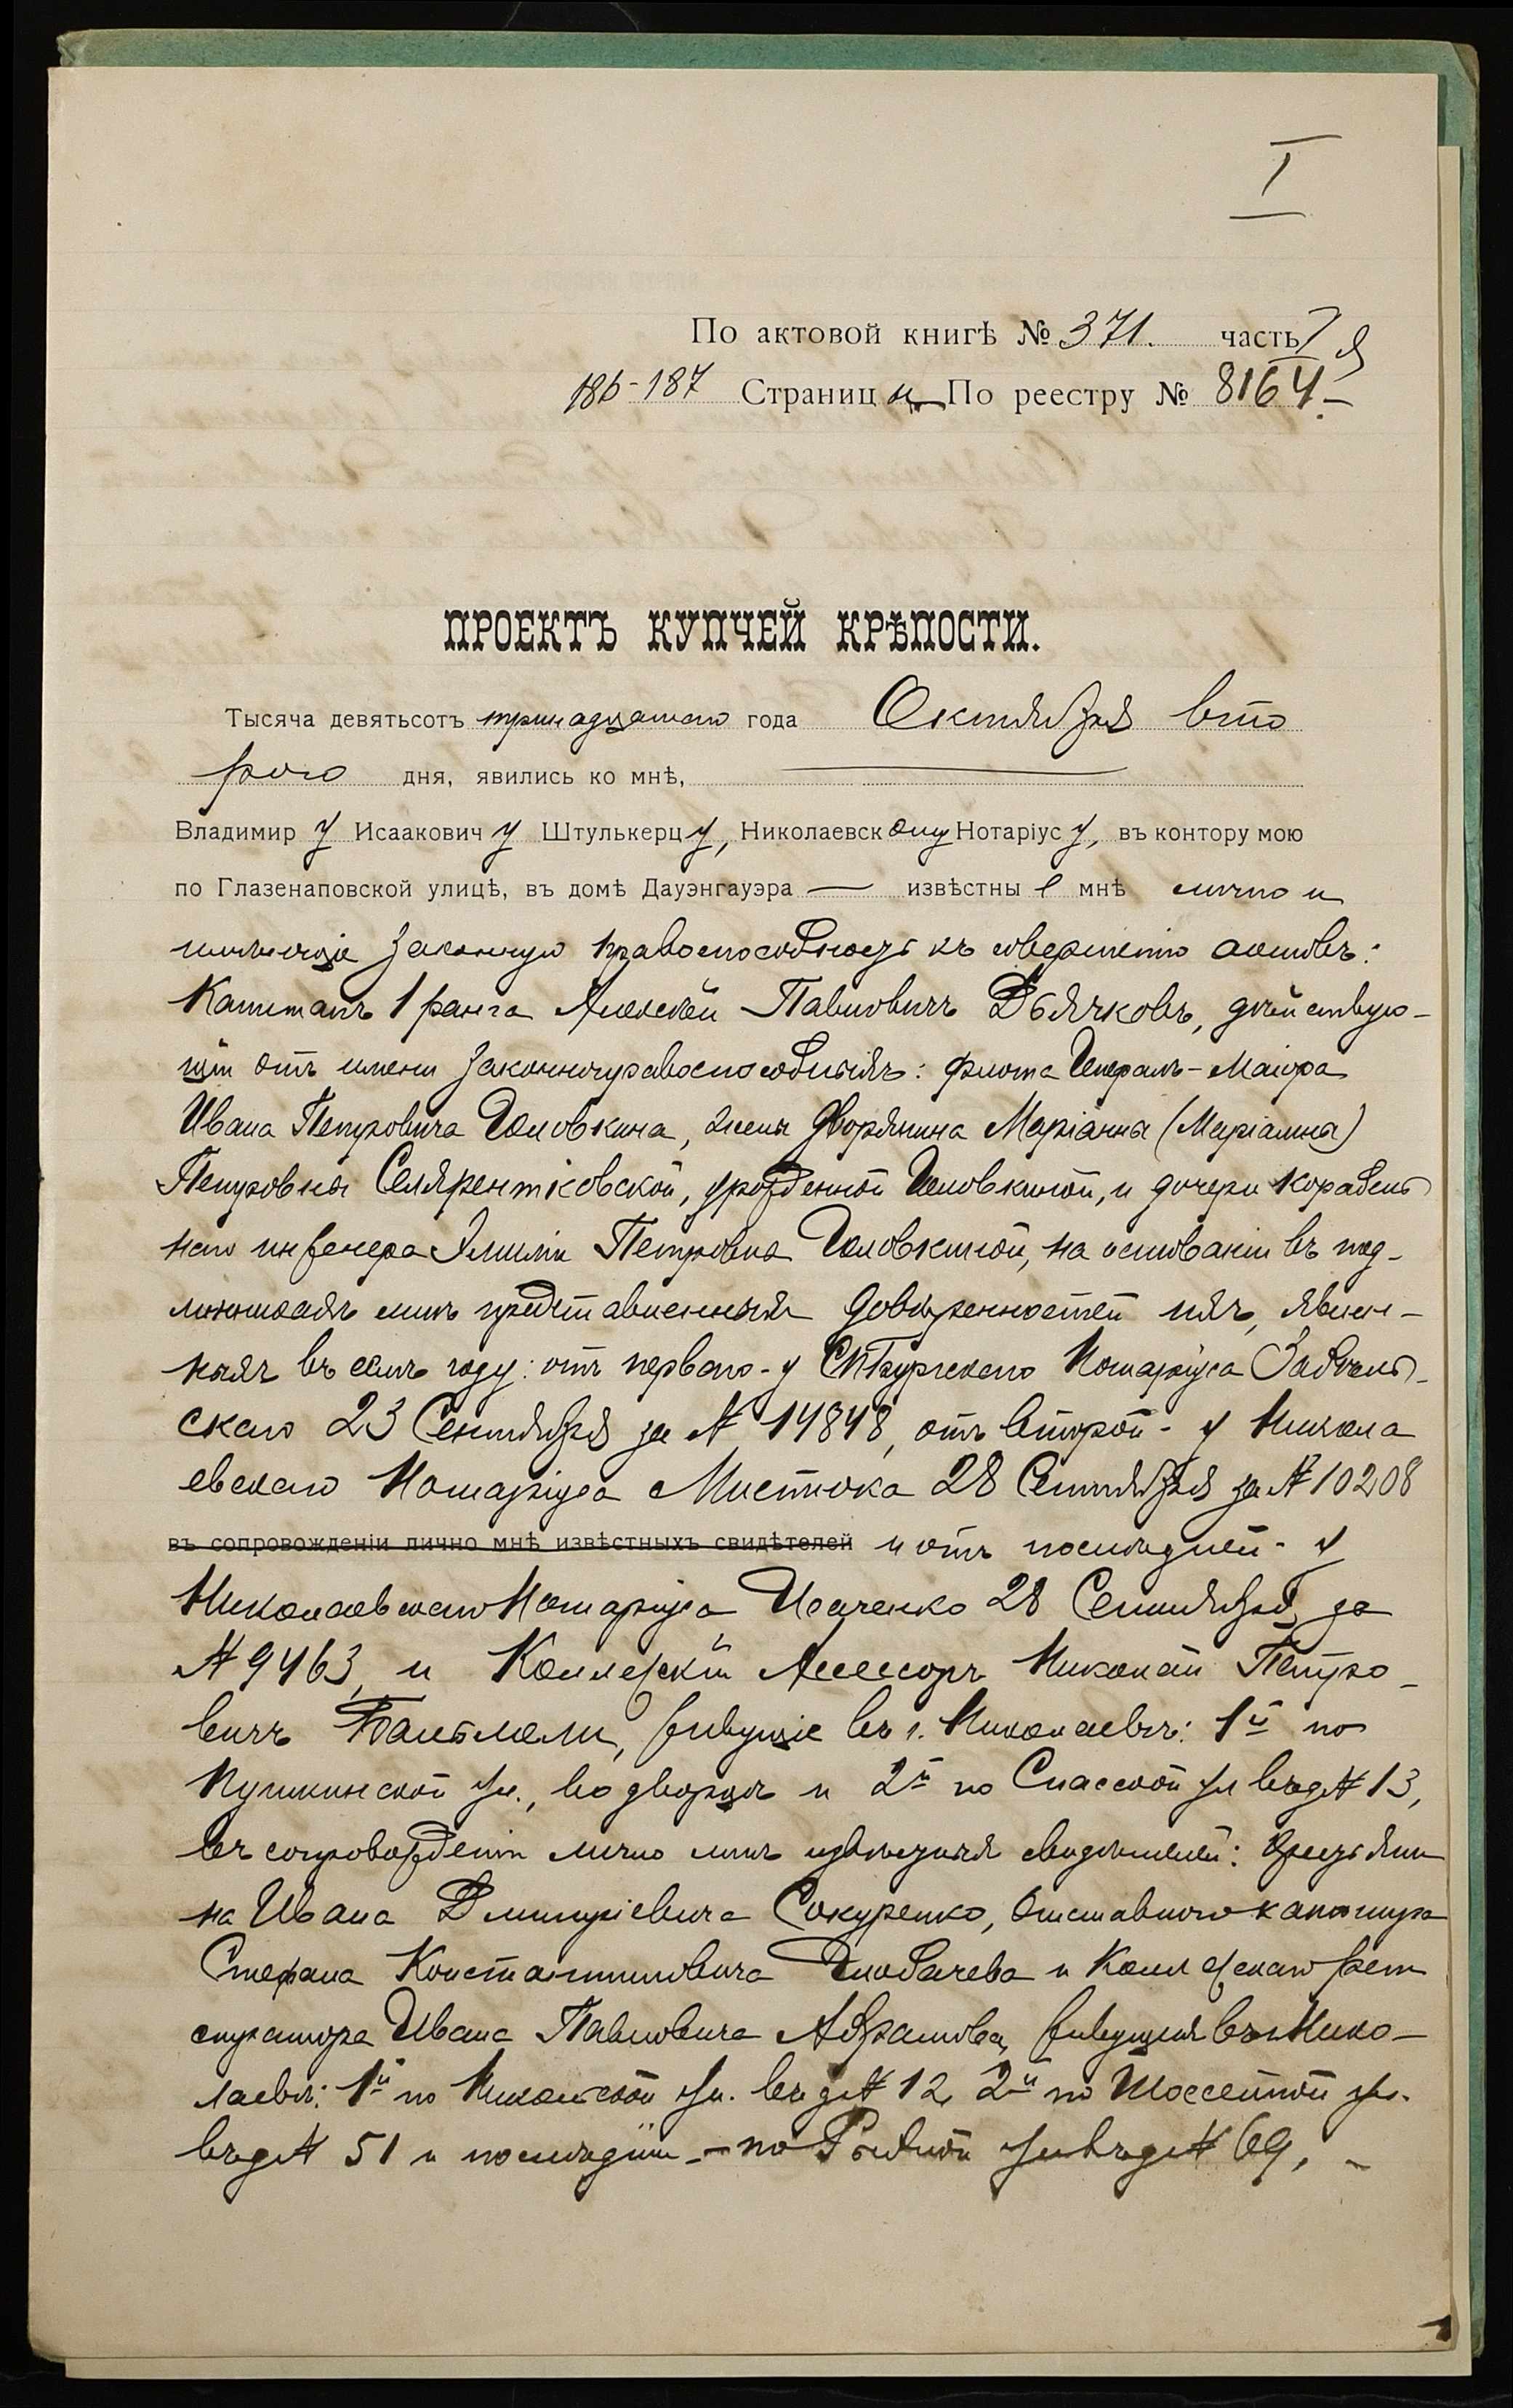 I
По актовой книгѣ № 371. часть I я
186-187 Страницы По реестру № 8164.
ПРОЕКТЪ КУПЧЕЙ КРѢПОСТИ.
Тысяча девятьсотъ тринадцатаго года Октября вто
рого дня, явились ко мнѣ,
Владимиру Исааковичу Штулькерцу, Николаевскому Нотаріусу, въ контору мою
по Глазенаповской улицѣ, въ домѣ Дауэнгауэра — извѣстные мнѣ лично и
имѣющіе законную правоспособность къ совершенію актовъ:
Капитанъ 1 ранга Алексѣй Павловичъ Дьячковъ, дѣйствую-
щій отъ имени законноправоспособныхъ: флота Генералъ-Маіора
Ивана Петровича Головкина, жены дворянина Маріанны (Маріамны)
Петровны Селярентковской, урожденной Головкиной, и дочери корабель
наго инженера Эмиліи Петровны Головкиной, на основаніи въ под-
линникахъ мнѣ представленныхъ довѣренностей ихъ, явлен-
ныхъ въ семъ году: отъ перваго - у СПбургскаго Нотаріуса
скаго 23 Сентября за № 14848, отъ второй - у Никола
евскаго Нотаріуса Мистюка 28 Сентября за № 10208
въ сопровожденіи лично мнѣ извѣстныхъ свидѣтелей и отъ послѣдней - у
Николаевскаго Нотаріуса Исаченко 28 Сентября за
№ 9463, и Коллежскій Асессоръ Николай Петро-
вичъ живущіе въ г. Николаевѣ: 1й по
Пушкинской ул., во дворцѣ и 2й по Спасской ул въ д № 13,
въ сопровожденіи лично мнѣ извѣстныхъ свидѣтелей: крестьяни
на Ивана Дмитріевича Сокуренко, отставного кантонира
Стефана Константиновича Глобачева и Коллежскаго Реги
стратора Ивана Павловича Абрамова, живущихъ въ г Нико-
лаевѣ: 1й по Никольской ул. въ д № 12, 2й по Шоссейной ул.
въ д № 51 и послѣдній - по Рыбной ул въ д № 69, -